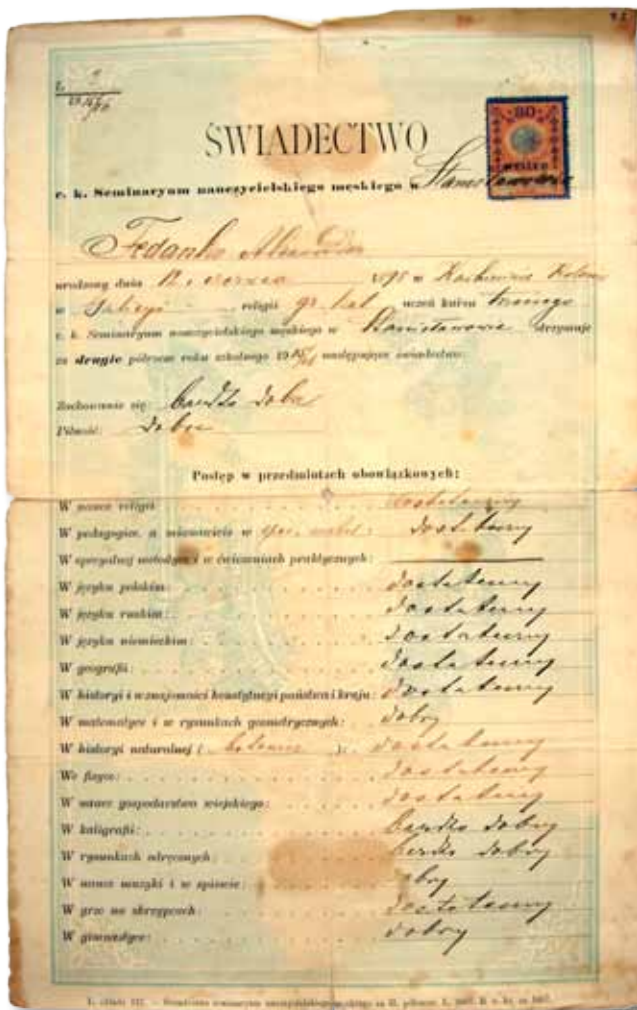 ŚWIADECTWO
30
HELLER
c. k. Seminaryum nauczycielskiego męskiego w Stanisławowie
urodzony dnia 12. czerwca 1895 w
w Galicyi religii gr. kat. uczeń kursu trzeciego
c. k. Seminaryum nauczycielskiego męskiego w Stanisławowie otrzymuje
za drugie półrocze roku szkolnego 19 następujące świadectwo:
Zachowanie się: bardzo dobre
Pilność: dobra
Postęp w przedmiotach obowiązkowych:
W nauce religii dostateczny
W pedagogice, a mianowicie w dostateczny
W specyalnej metodyce i w ćwiczeniach praktycznych:
W języku polskim: dostateczny
W języku ruskim: dostateczny
W języku niemieckim: dostateczny
W geografii: dostateczny
W historyi i w znajomości konstytucyi państwa i kraju: dostateczny
W matematyce i w rysunkach geometrycznych: dobry
W historyi naturalnej ( botanice ): dostateczny
We fizyce: dostateczny
W nauce gospodarstwa wiejskiego: dostateczny
W kaligrafii: bardzo dobry
W rysunkach odręcznych: bardzo dobry
W nauce muzyki i w śpiewie: dobry
W grze na skrzypcach: dostateczny
W gimnastyce: dobry